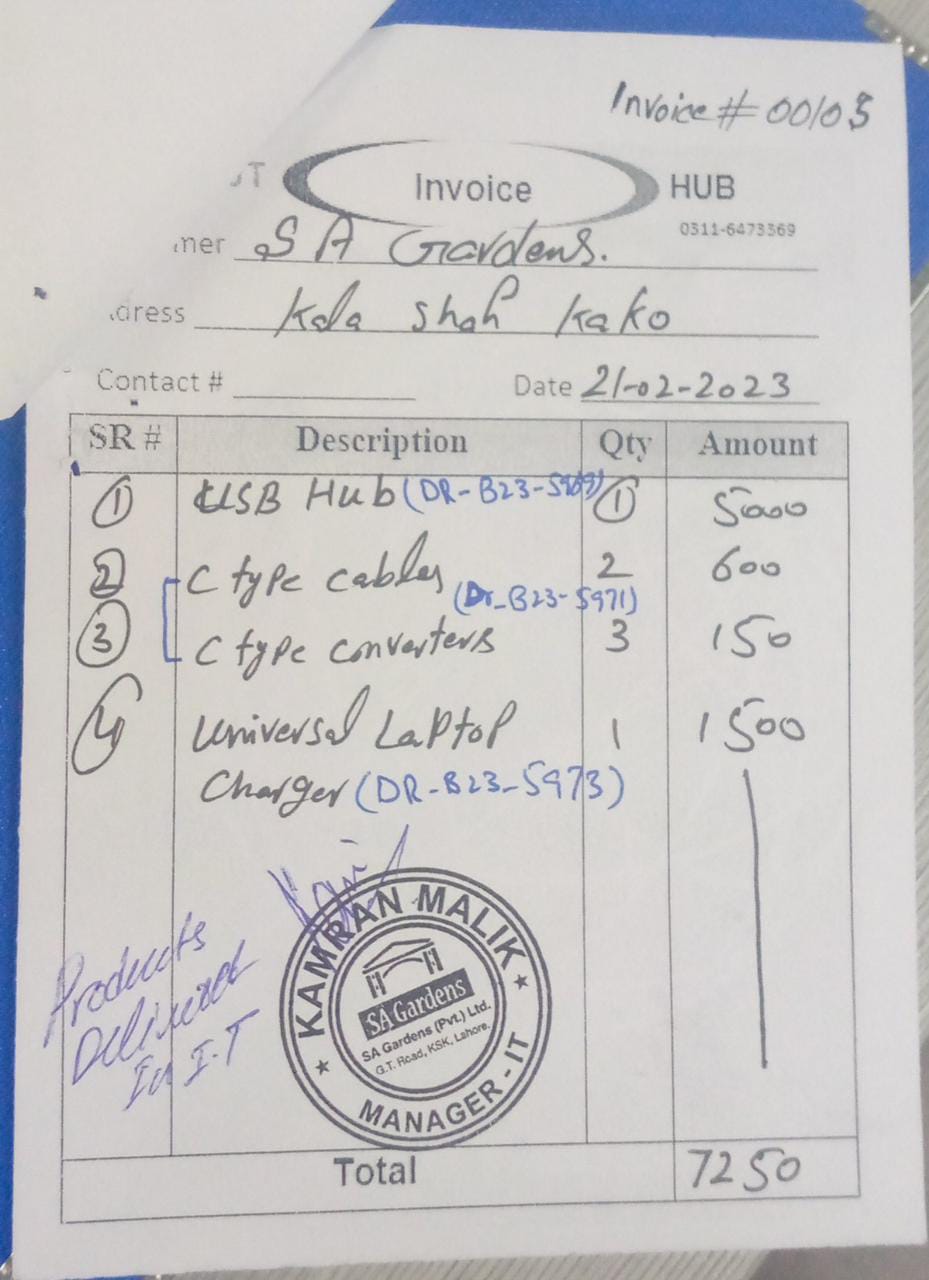 Invoice # 00103
Invoice
HUB
0311-6473369
mer S A Gardens.
dress Kala Shah Kako
Contact #
Date 21-02-2023
SR # Description Qty Amount
1 USB Hub (DR-B23-5969) 1 5000
2 C type cables 2 600
(Dr-B23-5971)
3 C type converters 3 150
4 Universal Laptop 1 1500
Charger (DR-B23-5973)
Products
Delivered
In I-T
KAMRAN MALIK
SA Gardens
SA Gardens (Pvt.) Ltd.
G.T. Road, KSK, Lahore.
MANAGER - IT
Total 7250